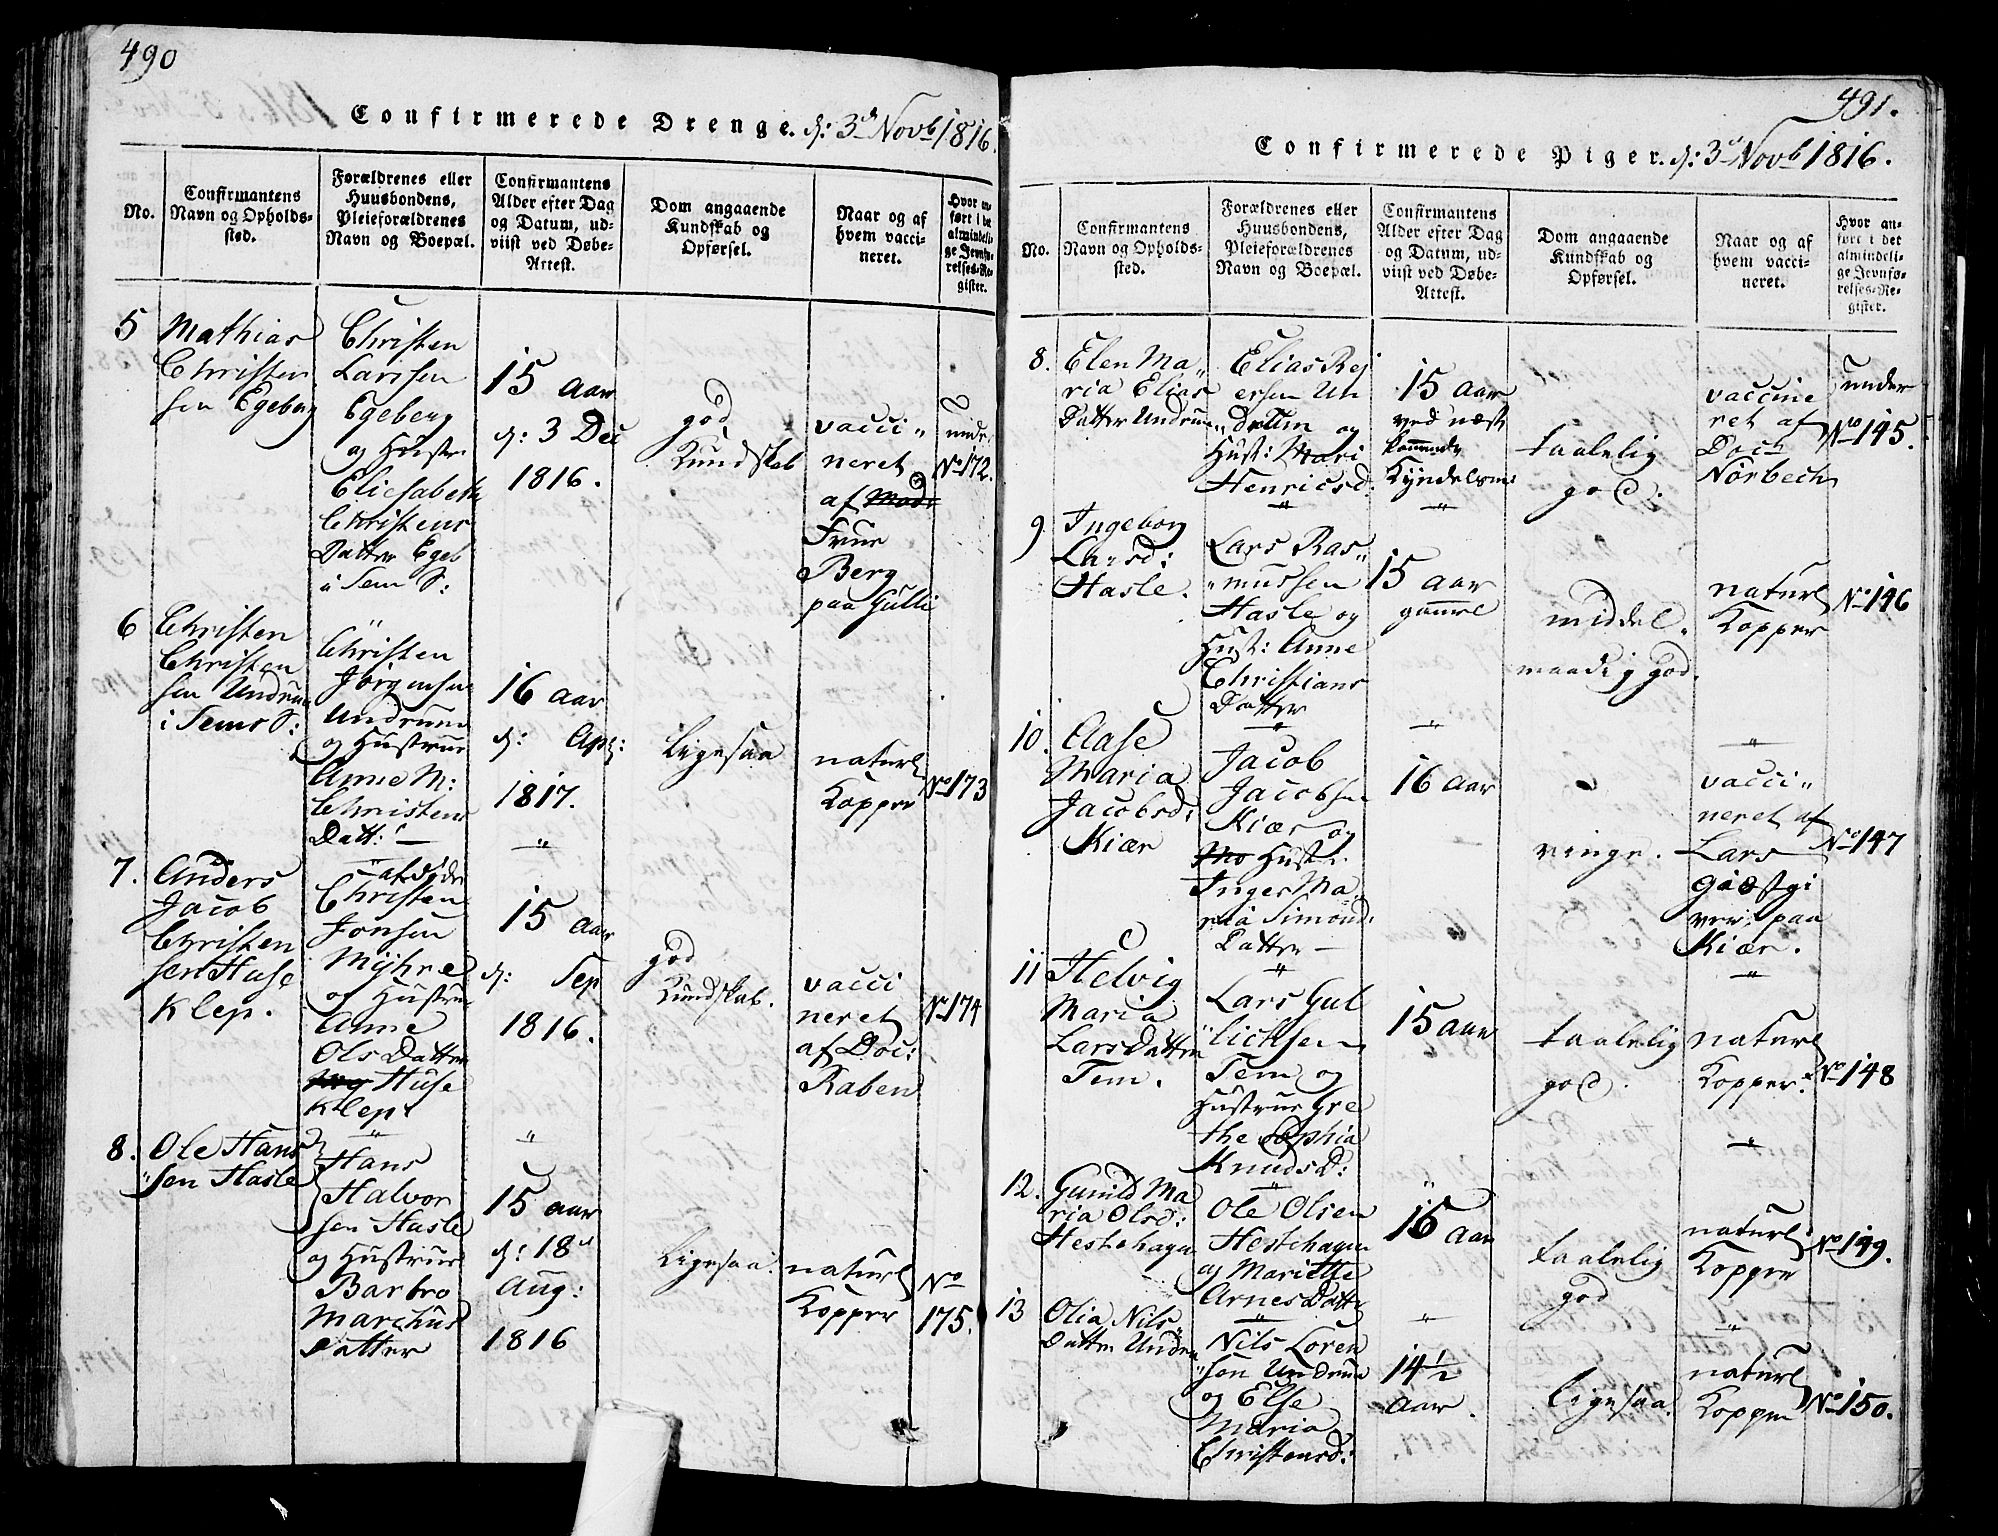 490
Confirmerede Drenge. d: 3d Novb 1816.
No.
Confirmantens
Navn og Opholds-
sted.
Forældrenes eller
Huusbondens,
Pleieforældrenes
Navn og Boepæl.
Confirmantens
Alder efter Dag
og Datum, ud-
viist ved Døbe-
Attest.
Dom angaaende
Kundskab og
Opførsel.
Naar og af
hvem vacci-
neret.
Hvor an-
ført i det
almindeli-
ge Jevnfø-
relses-Re-
gister.
5
Mathias
Christen
sen Egeberg
Christen
Larssen
Egeberg
og Hustr
Eliesabeth
Christens
Datter Egeb
i Sem S:
15 aar
d: 3 Dec
1816.
god
Kundskab
vacci„
neret
af Mad
Frue
Berg
paa Gulli
unde
No 172.
6
Christen
Christen
sen Undrum
i Sems S:
Christen
Jørgensen
Undrum
og Hustrue
Anne M:
Christens
Datt: —
16 aar
d: Apl:
1817.
Ligesaa
naturl
Kopper
No 173
7.
Anders
Jacob
Christen
sen Huse
Klep.
afdøde
Christen
Jonsen
Myhre
og Hustrue
Anne
OlsDatter
Huse
Klep.
15 aar
d: Sep
1816.
god
Kundskab.
vacci
neret
af Doc:
Raben
No 174
8.
Ole Hans
„sen Hasle
Hans
Halvor
sen Hasle
og Hustrue
Barbro
Marchus
datter
15 aar
d: 18d
Aug:
1816
Ligesaa.
naturl
Kopper
No
175.
491.
Confirmerede Piger. d: 3d Novb 1816.
No.
Confirmantens
Navn og Opholds-
sted.
Forældrenes eller
Huusbondens,
Pleieforældrenes
Navn og Boepæl.
Confirmantens
Alder efter Dag
og Datum, ud-
viist ved Døbe-
Attest.
Dom angaaende
Kundskab og
Opførsel.
Naar og af
hvem vacci-
neret.
Hvor an-
ført i det
almindeli-
ge Jevnfø-
relses-Re-
gister.
8.
Elen Ma„
ria Elias
Datter Undrum
Elias Rej
ersen Un
„drum og
Hust: Mari
Henricsd.
15 aar
ved næst
kommende
Kyndelsm:
taalelig
god.
vaccine
ret af
Doct
Nörbech
under
No 145.
9.
Ingeborg
Larsd:
Hasle.
Lars Ras„
„mussen
Hasle og
Hust: Anne
Christians
Datter
15 aar
gamel
middel„
maadig god.
naturl
Kopper
No 146
10.
Aase
Maria
Jacobsd:
Kiær
Jacob
Jacobsen
Kiær og
Hust:
Inger Ma„
ria Simond:
Datter —
16 aar
ringe.
vacci„
neret af
Lars
Giæstgi
ver paa
Kiær.
No 147
11
Helvig
Maria
LarsDatter
Tem.
Lars Gul
„lichsen
Tem og
Hustrue Gre
the Sophia
KnudsD:
15 aar
taalelig
god.
naturl
Kopper.
No 148
12.
Gunild Ma
ria Olsd:
Hestehagen
Ole Olsen
Hestehagen
og Mariethe
ArnesDatter
16 aar
taalelig
god
naturl
Kopper
No 149.
13
Olia Nils„
Datter Undrum
Nils Loren
„sen Undrum
og Else
Maria
Christensd:
14 1/2
aar.
ligesaa.
naturl
Kopper
No 150.